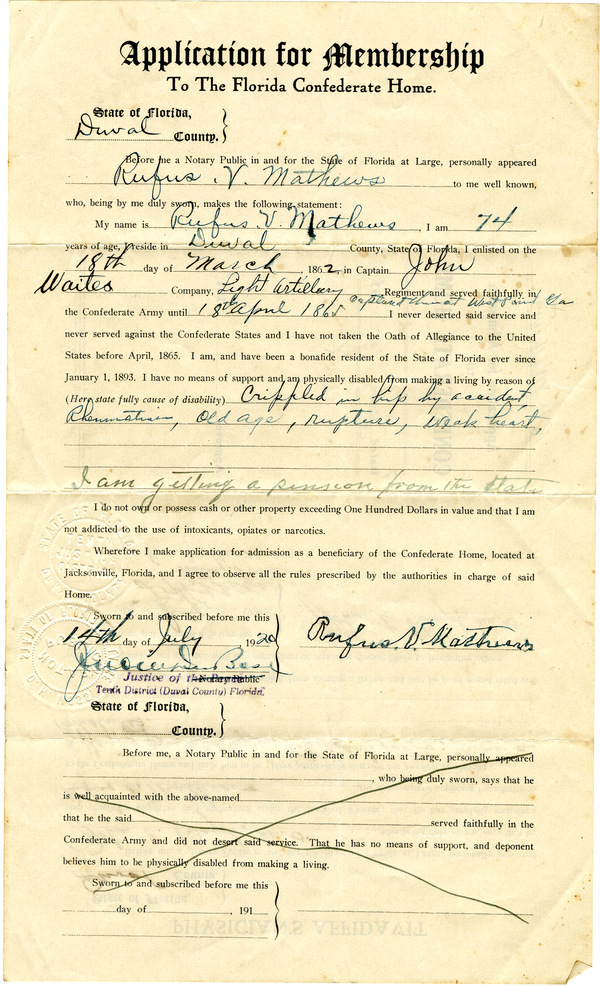 Application for Membership
To The Florida Confederate Home.
State of Florida,
Duval County.
Before me a Notary Public in and for the State of Florida at Large, personally appeared
Rufus V. Mathews to me well known,
who, being by me duly sworn, makes the following statement:
My name is Rufus V. Mathews, I am 74
years of age, I reside in Duval County, State of Florida, I enlisted on the
18th day of March 1862, in Captain John
Waites Company, Light Artillery Regiment and served faithfully in
the Confederate Army until 18th April 1865 West Point Ga I never deserted said service and
never served against the Confederate States and I have not taken the Oath of Allegiance to the United
States before April, 1865. I am, and have been a bonafide resident of the State of Florida ever since
January 1, 1893. I have no means of support and am physically disabled from making a living by reason of
(Here state fully cause of disability) Crippled in hip by accident,
Rheumatism, old age, rupture, weak heart,
I am getting a pension from the State
I do not own or possess cash or other property exceeding One Hundred Dollars in value and that I am
not addicted to the use of intoxicants, opiates or narcotics.
Wherefore I make application for admission as a beneficiary of the Confederate Home, located at
Jacksonville, Florida, and I agree to observe all the rules prescribed by the authorities in charge of said
Home.
Sworn to and subscribed before me this
14th day of July 1920 Rufus V. Mathews
Notary Public
Justice of the Peace
Tenth District (Duval County) Florida.
State of Florida,
County.
Before me, a Notary Public in and for the State of Florida at Large, personally appeared
, who being duly sworn, says that he
is well acquainted with the above-named
that he the said served faithfully in the
Confederate Army and did not desert said service. That he has no means of support, and deponent
believes him to be physically disabled from making a living.
Sworn to and subscribed before me this
day of , 191
PHYSICIAN'S AFFIDAVIT